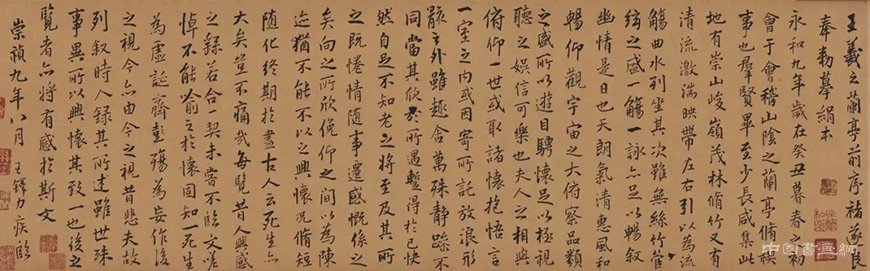 王羲之蘭亭前序褚遂良
奉勑摹絹本
永和九年歲在癸丑暮春之初
會于會稽山陰之蘭亭脩禊
事也羣賢畢至少長咸集此
地有崇山峻嶺茂林脩竹又有
清流激湍暎帶左右引以為流
觴曲水列坐其次雖無絲竹管
絃之盛一觴一詠亦足以暢敘
幽情是日也天朗氣清惠風和
暢仰觀宇宙之大俯察品類
之盛所以遊目騁懷足以極視
聽之娛信可樂也夫人之相與
俯仰一世或取諸懷抱悟言
一室之內或因寄所託放浪形
骸之外雖趣舍萬殊靜躁不
同當其欣於所遇蹔得於己快
然自足不知老之將至及其所
之既惓情隨事遷感慨係之
矣向之所欣俛仰之間以為陳
迹猶不能不以之興懷況脩短
隨化終期於盡古人云死生亦
大矣豈不痛哉每覽昔人興感
之緣若合一契未嘗不臨文嗟
悼不能喻之於懷固知一死生
為虛誕齊彭殤為妄作後
之視今亦由今之視昔悲夫故
列敘時人錄其所述雖世殊
事異所以興懷其致一也後之
覽者亦將有感於斯文
崇禎九年八月 王鐸力疾臨
中國書畫網